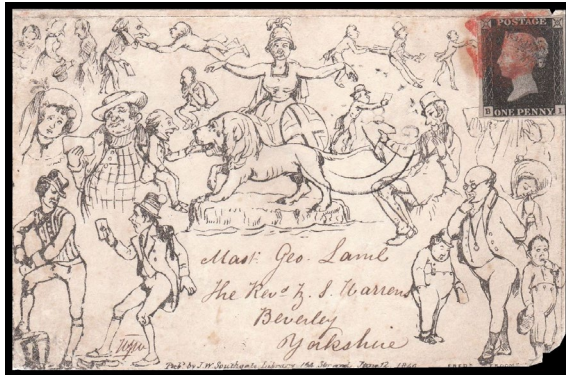 POSTAGE
B I
ONE PENNY
Mast. Geo. Lamb
The Revd. J. Warren
Beverley
Yorkshire
Pubd. by J. W. Southgate Library 164 Strand June 12 1840